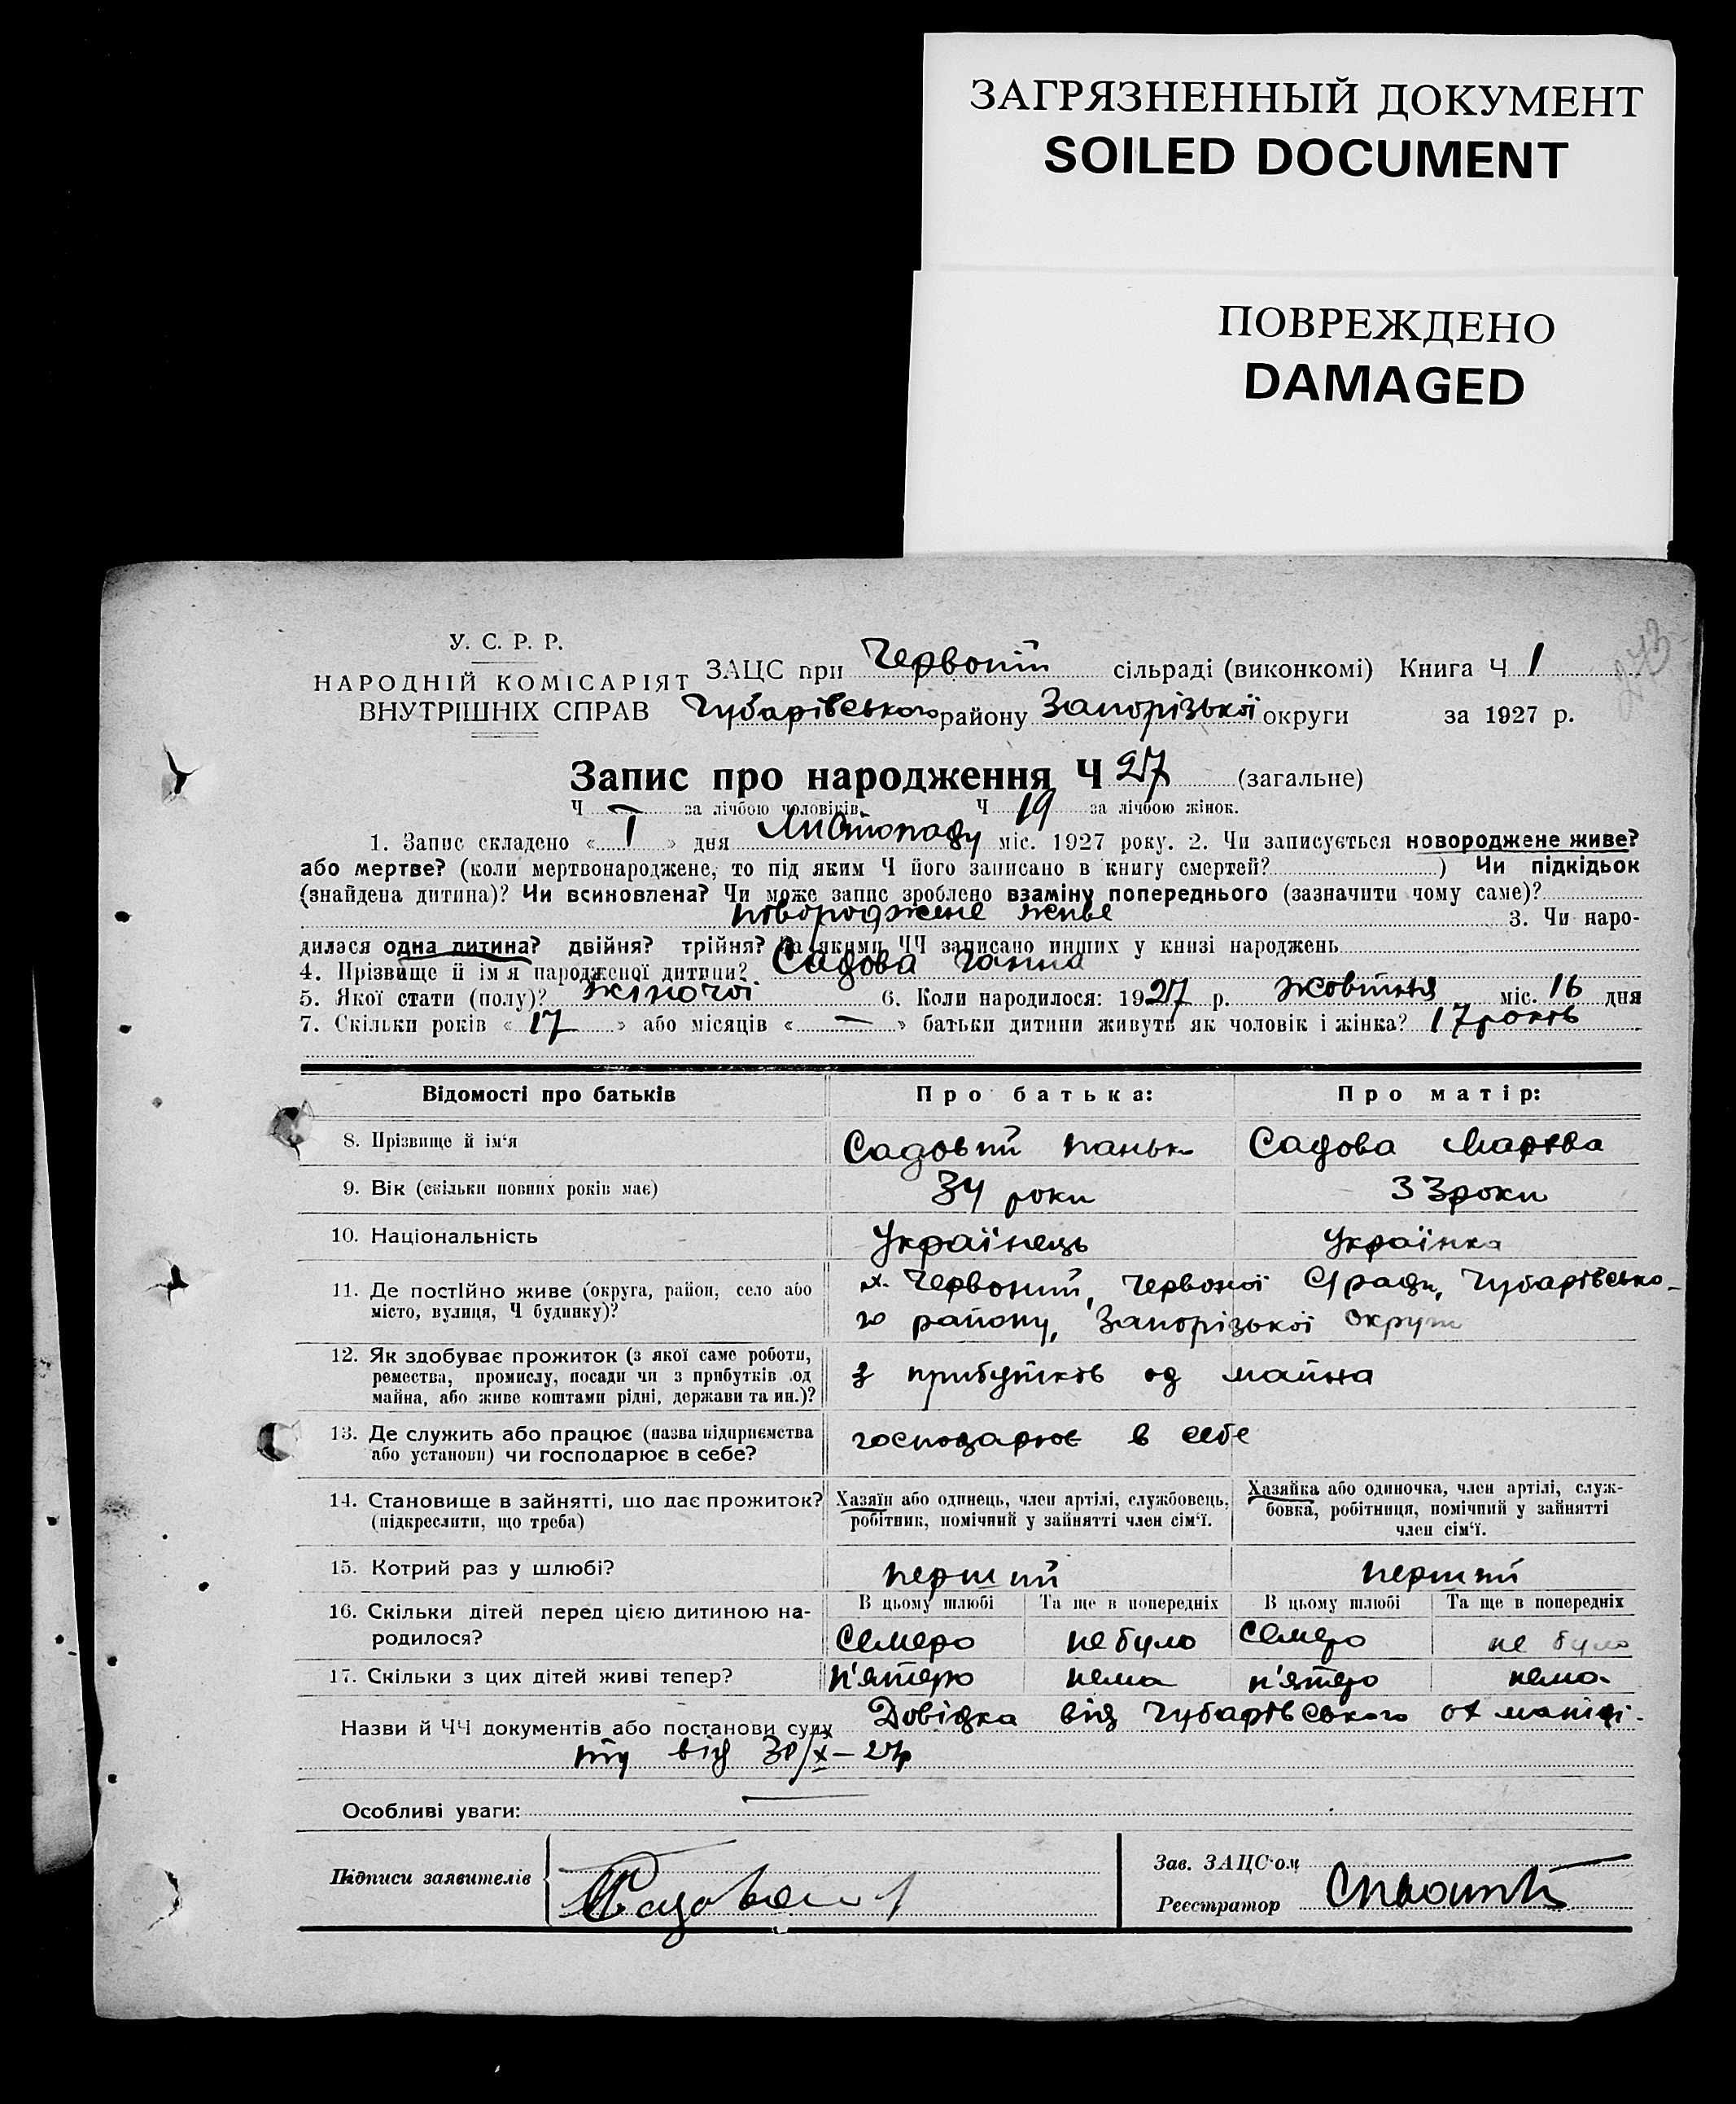 ЗАГРЯЗНЕННЫЙ ДОКУМЕНТ
SOILED DOCUMENT
ПОВРЕЖДЕНО
DAMAGED
У. С. Р. Р.
НАРОДНІЙ КОМІСАРІЯТ
ВНУТРІШНІХ СПРАВ
ЗАЦС при Червоній сільраді (виконкомі) Книга Ч 1
Чубарівського району Запорізької округи за 1927 р.
Запис про народження Ч 27 (загальне)
Ч — за лічбою чоловіків. Ч 19 за лічбою жінок.
1. Запис складено « 1 » дня Листопаду міс. 1927 року. 2. Чи записується новороджене живе?
або мертве? (коли мертвонароджене, то під яким Ч його записано в книгу смертей? ) Чи підкідьок
(знайдена дитина)? Чи всиновлена? Чи може запис зроблено взаміну попереднього (зазначити чому саме)?
новороджене живе 3. Чи наро-
дилася одна дитина? двійня? трійня? За якими ЧЧ записано инших у книзі народжень
4. Прізвище й ім'я народженої дитини? Садова Ганна
5. Якої стати (полу)? жіночої 6. Коли народилося: 1927 р. жовтня міс. 16 дня
7. Скільки років « 17 » або місяців « — » батьки дитини живуть як чоловік і жінка? 17 років
Відомості про батьків Про батька: Про матір:
8. Прізвище й ім'я Садовий Панько Садова Мартва
9. Вік (скільки повних років має) 34 роки 33 роки
10. Національність Українець Українка
11. Де постійно живе (округа, район, село або
місто, вулиця, Ч будинку)?
х. Червоний, Червоної С/ради, Чубарівсько-
го району, Запорізької округи
12. Як здобуває прожиток (з якої саме роботи,
ремества, промислу, посади чи з прибутків од
майна, або живе коштами рідні, держави та ин.)?
з прибутків од майна
13. Де служить або працює (назва підприємства
або установи) чи господарює в себе?
господарює в себе
14. Становище в зайнятті, що дає прожиток?
(підкреслити, що треба)
Хазяїн або одинець, член артілі, службовець,
робітник, помічний у зайнятті член сім'ї.
Хазяйка або одиночка, член артілі, служ-
бовка, робітниця, помічний у зайнятті
член сім'ї.
15. Котрий раз у шлюбі? перший перший
16. Скільки дітей перед цією дитиною на-
родилося?
В цьому шлюбі Та ще в попередніх В цьому шлюбі Та ще в попередніх
семеро не було семеро не було
17. Скільки з цих дітей живі тепер? п'ятеро нема п'ятеро нема
Назви й ЧЧ документів або постанови суду Довідка від Чубарівського
від 30/X–27р
Особливі уваги: —
Підписи заявителів
Зав. ЗАЦС'ом
Реєстратор